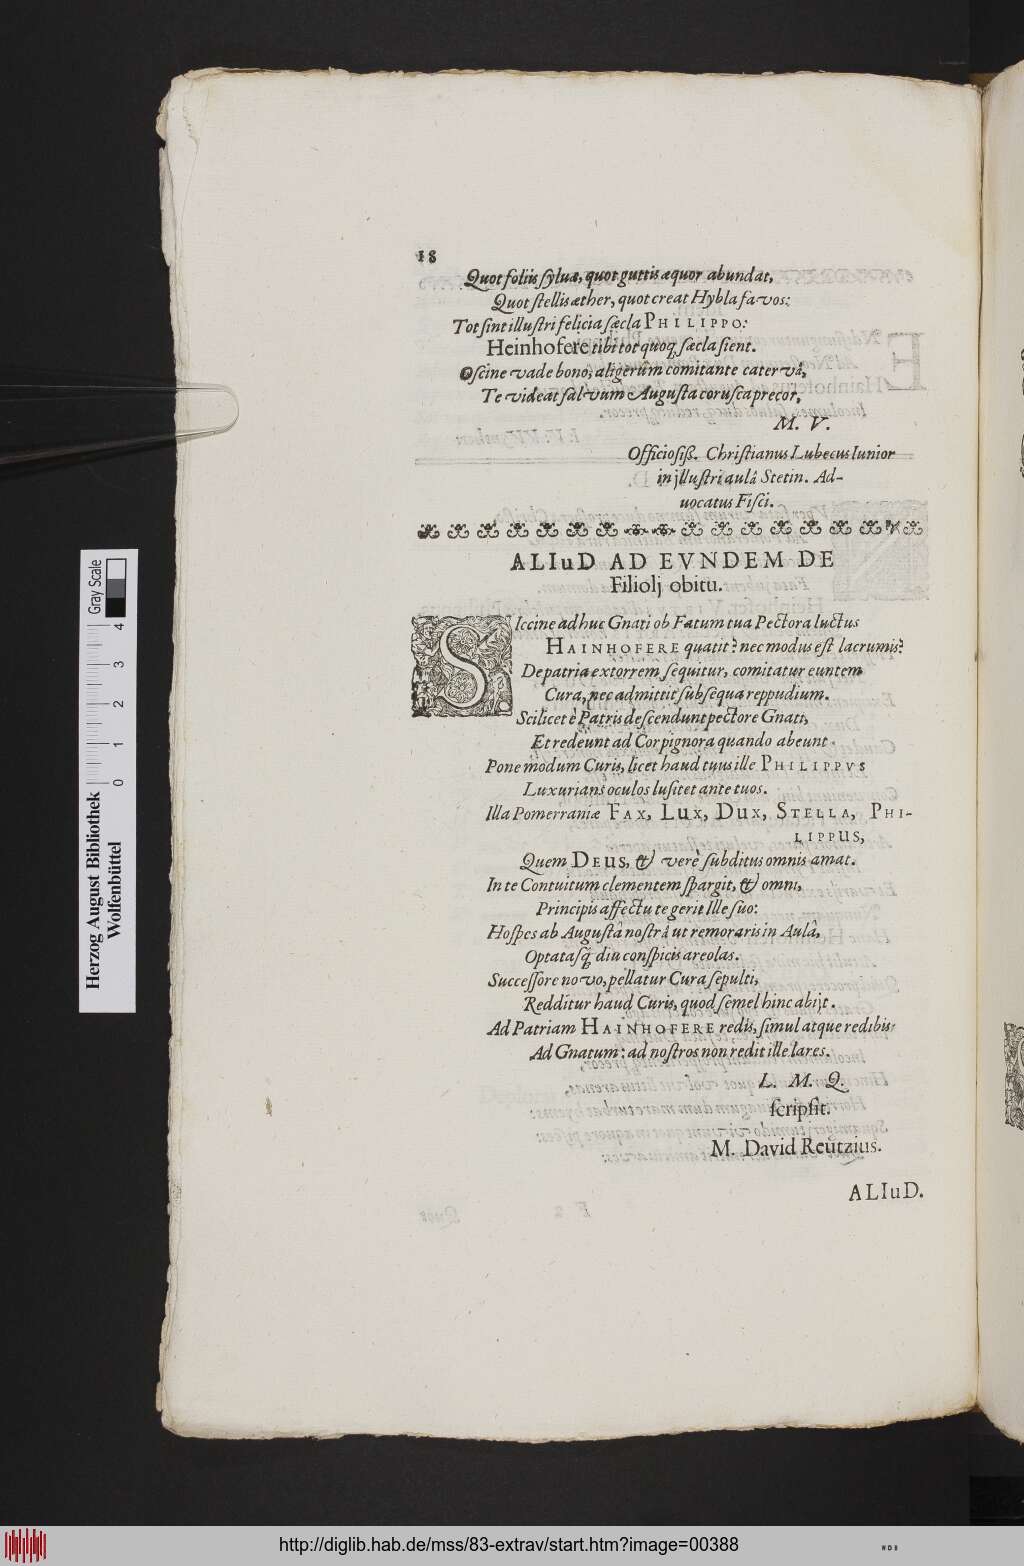 18
Quot foliis sylvæ, quot guttis æquor abundat,
Quot stellis æther, quot creat Hybla favos:
Tot sint illustri felicia sæcla PHILIPPO:
Heinhofere tibi tot quoq; sæcla sient.
Oscine vade bono, aligerûm comitante catervâ,
Te videat salvum Augusta corusca precor,
M. V.
Officiosiß. Christianus Lubecus Iunior
in jllustri aulâ Stetin. Ad-
uocatus Fisci.
ALIuD AD EVNDEM DE
Filiolj obitu.
SIccine adhuc Gnati ob Fatum tua Pectora luctus
HAINHOFERE quatit? nec modus est lacrumis?
De patria extorrem sequitur, comitatur euntem
Cura, nec admittit subsequa reppudium.
Scilicet è Patris descendunt pectore Gnati,
Et redeunt ad Cor pignora quando abeunt.
Pone modum Curis, licet haud tuus ille PHILIPPVS
Luxurians oculos lusitet ante tuos.
Illa Pomerraniæ FAX, LUX, DUX, STELLA, PHI-
LIPPUS,
Quem DEUS, & verè subditus omnis amat.
In te Contuitum clementem spargit, & omni,
Principis affectu te gerit Ille suo:
Hospes ab Augustâ nostrâ ut remoraris in Aulâ,
Optatasq; diu conspicis areolas.
Successore novo, pellatur Cura sepulti,
Redditur haud Curis, quod semel hinc abijt.
Ad Patriam HAINHOFERE redis, simul atque redibis
Ad Gnatum: ad nostros non redit ille lares.
L. M. Q.
scripsit.
M. David Reutzius.
ALIuD.
Herzog August Bibliothek
Wolfenbüttel
0 1 2 3 4
Gray Scale
http://diglib.hab.de/mss/83-extrav/start.htm?image=00388